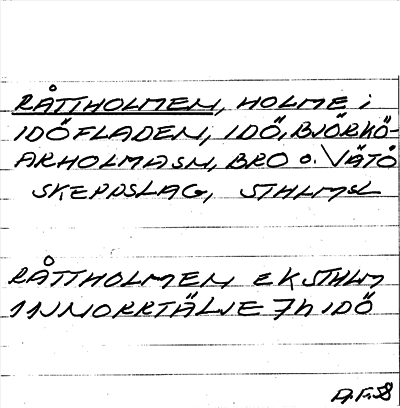 RÅTTHOLMEN, HOLME i
IDÖFLADEN, IDÖ, BJÖRKÖ-
ARHOLMASN, BRO o. VÄTÖ
SKEPPSLAG, STHLMSL
RÅTTHOLMEN EKSTHLM
11NNORRTÄLJE 7h IDÖ